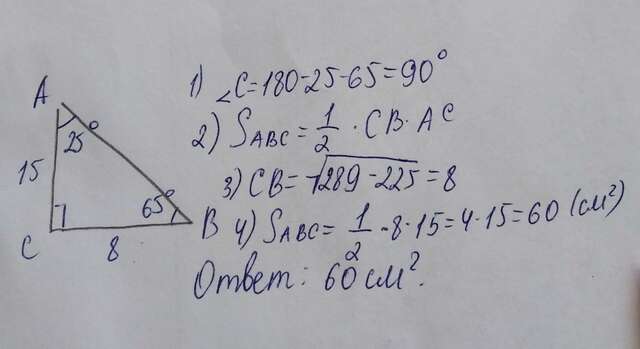 A
25°
15
65°
C
8
B
1) ∠C=180-25-65=90°
2) SABC=1/2·CB·AC
3) CB=√289-225=8
4) SABC=1/2·8·15=4·15=60 (см²)
Ответ: 60 см².